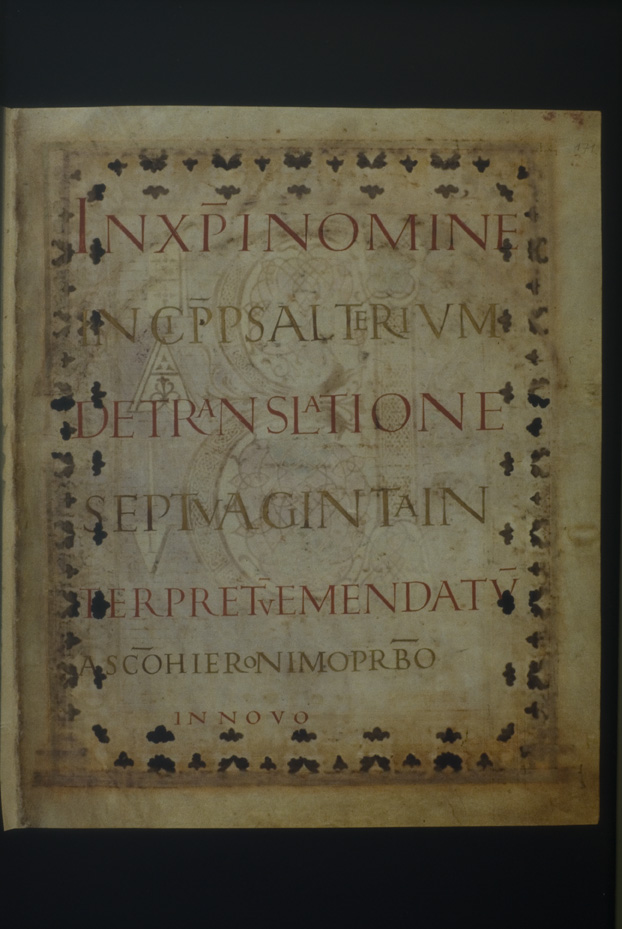 INXP̄INOMINE
INCIP̄PSALTERIVM
DETRANSLATIONE
SEPTVAGINTAIN
TERPRETV̄EMENDATV̄
ASC̄OHIERONIMOPRB̄O
INNOVO